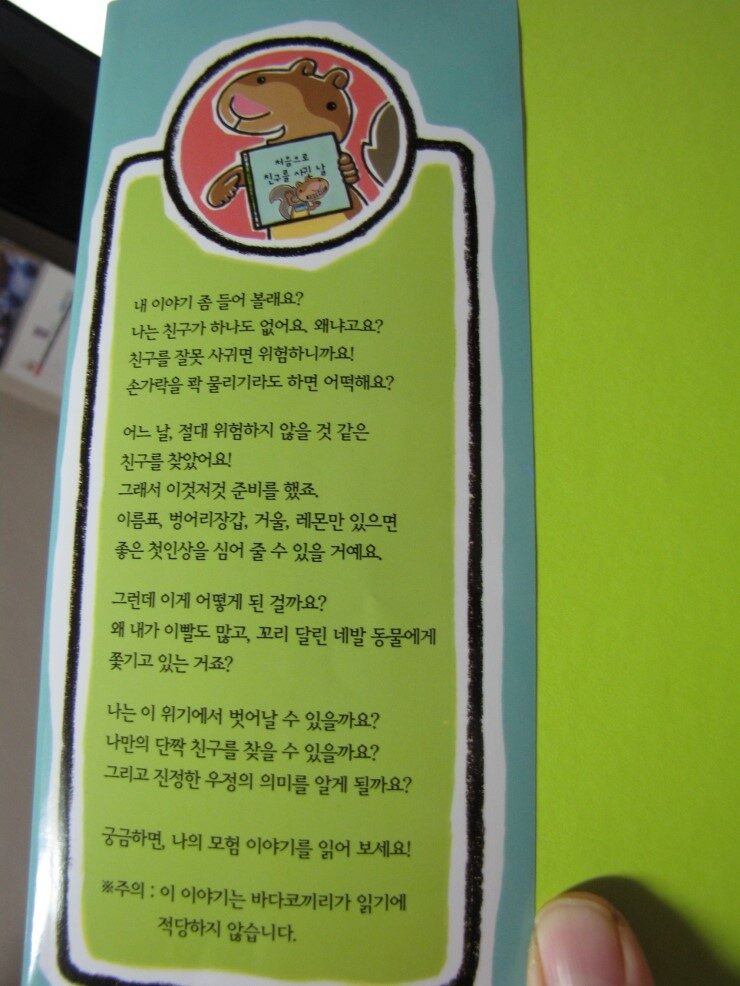 처음으로
친구를 사귄 날
내 이야기 좀 들어 볼래요?
나는 친구가 하나도 없어요. 왜냐고요?
친구를 잘못 사귀면 위험하니까요!
손가락을 꽉 물리기라도 하면 어떡해요?
어느 날, 절대 위험하지 않을 것 같은
친구를 찾았어요!
그래서 이것저것 준비를 했죠.
이름표, 벙어리장갑, 거울, 레몬만 있으면
좋은 첫인상을 심어 줄 수 있을 거예요.
그런데 이게 어떻게 된 걸까요?
왜 내가 이빨도 많고, 꼬리 달린 네발 동물에게
쫓기고 있는 거죠?
나는 이 위기에서 벗어날 수 있을까요?
나만의 단짝 친구를 찾을 수 있을까요?
그리고 진정한 우정의 의미를 알게 될까요?
궁금하면, 나의 모험 이야기를 읽어 보세요!
※주의 : 이 이야기는 바다코끼리가 읽기에
적당하지 않습니다.